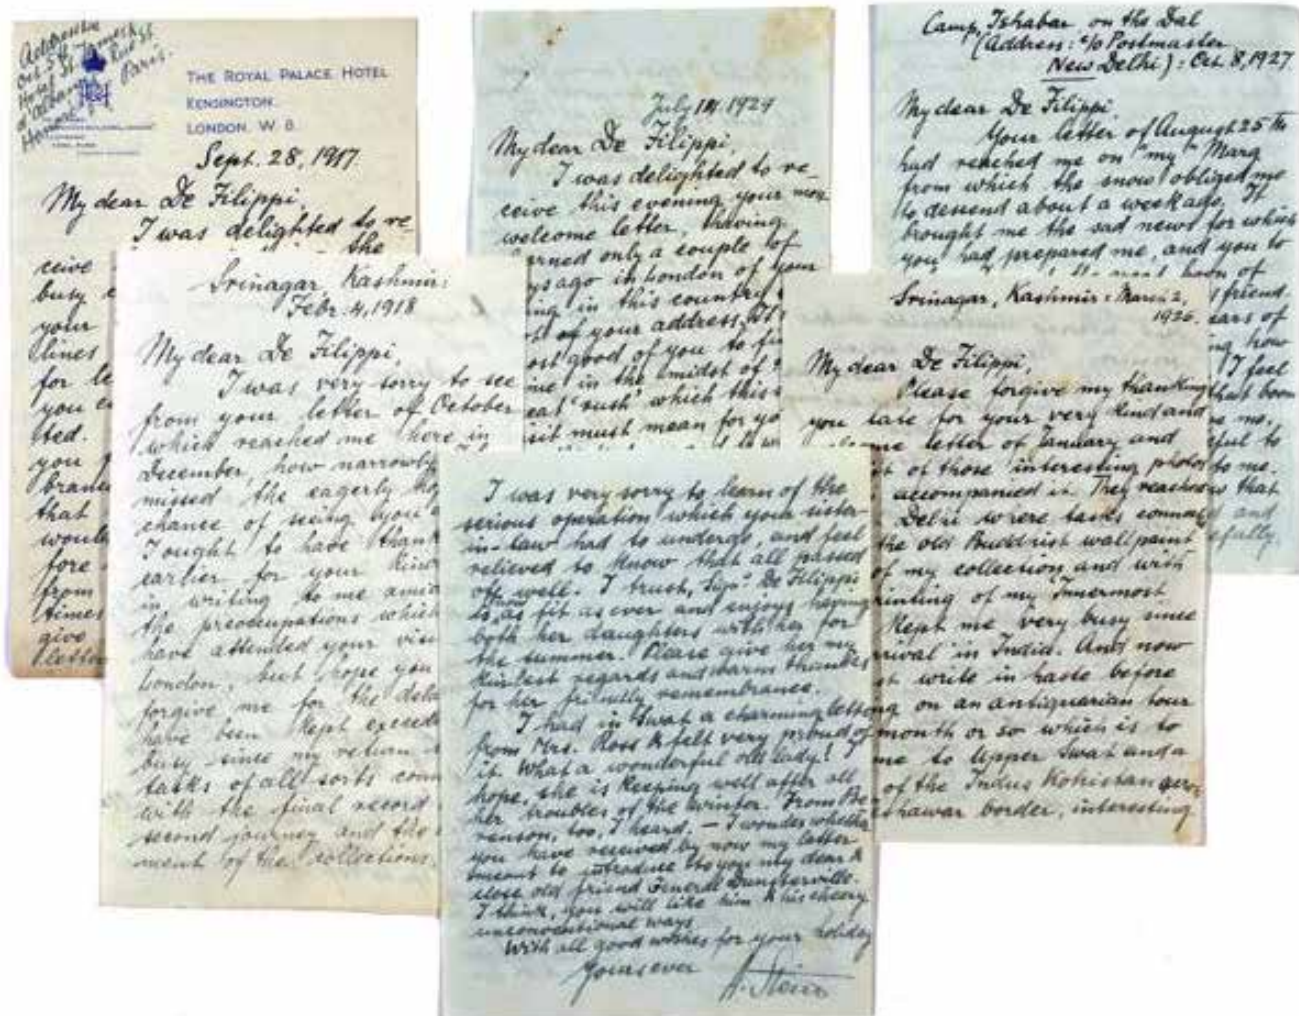 Address
Oct. 5th
Hotel St. James &
d'Albany, Rue St.
Honoré, Paris.
THE ROYAL PALACE HOTEL
KENSINGTON.
LONDON. W 8.
Sept. 28, 1917.
My dear De Filippi,
I was delighted to re-
ceive the
busy
your
lines
for le
you
ted.
you
branch
that
would
fore
from
times
give
letter
Srinagar, Kashmir:
Febr. 4, 1918
My dear De Filippi,
I was very sorry to see
from your letter of October
which reached me here in
December, how narrowly
missed the eagerly
chance of seeing you
I ought to have thank
earlier for your kind
in writing to me amid
the preoccupations which
have attended your vis
London, but hope you
forgive me for the dela
have been kept exceed
busy since my return
tasks of all sorts conn
with the final record
second journey and the
ment of the collections.
July 14, 1924
My dear De Filippi,
I was delighted to re-
ceive this evening your most
welcome letter, having
learned only a couple of
ys ago in London of your
ing in this country
st of your address. It
ost good of you to fi
me in the midst of
eat 'rush' which this
sit must mean for yo
I was very sorry to learn of the
serious operation which your sister-
in-law had to undergo, and feel
relieved to know that all passed
off well. I trust, Sigra De Filippi
is now as fit as ever and enjoys having
both her daughters with her for
the summer. Please give her my
kindest regards and warm thanks
for her friendly remembrance.
I had in Swat a charming letter
from Mrs. Ross & felt very proud of
it. What a wonderful old lady! I
hope, she is keeping well after all
her troubles of the winter. From Be
renson, too, I heard. — I wonder whether
you have received by now my letter
meant to introduce to you my dear &
close old friend General Dunsterville.
I think, you will like him & his cheery
unconventional ways.
With all good wishes for your holiday
Yours ever
A. Stein
Camp, Ishabar on the Dal
(Address: c/o Postmaster
New Delhi): Oct. 8, 1927.
My dear De Filippi,
Your letter of August 25th
had reached me on "my" Marg
from which the snow obliged me
to descend about a week ago. It
brought me the sad news for which
you had prepared me, and you to
of
friend.
ears of
ng how
I feel
that boon
me.
ful to
to me.
w that
and
efully.
Srinagar, Kashmir: March 2,
1926.
My dear De Filippi,
Please forgive my thanking
you late for your very kind and
me letter of January and
t of those interesting photos
accompanied it. They reached
Delhi where tasks connec
the old Buddhist wall paint
of my collection and with
rinting of my 'Innermost
kept me very busy since
rival in India. And now
st write in haste before
ng on an antiquarian tour
month or so which is to
me to Upper Swat and a
of the Indus Kohistan
shawar border, interesting